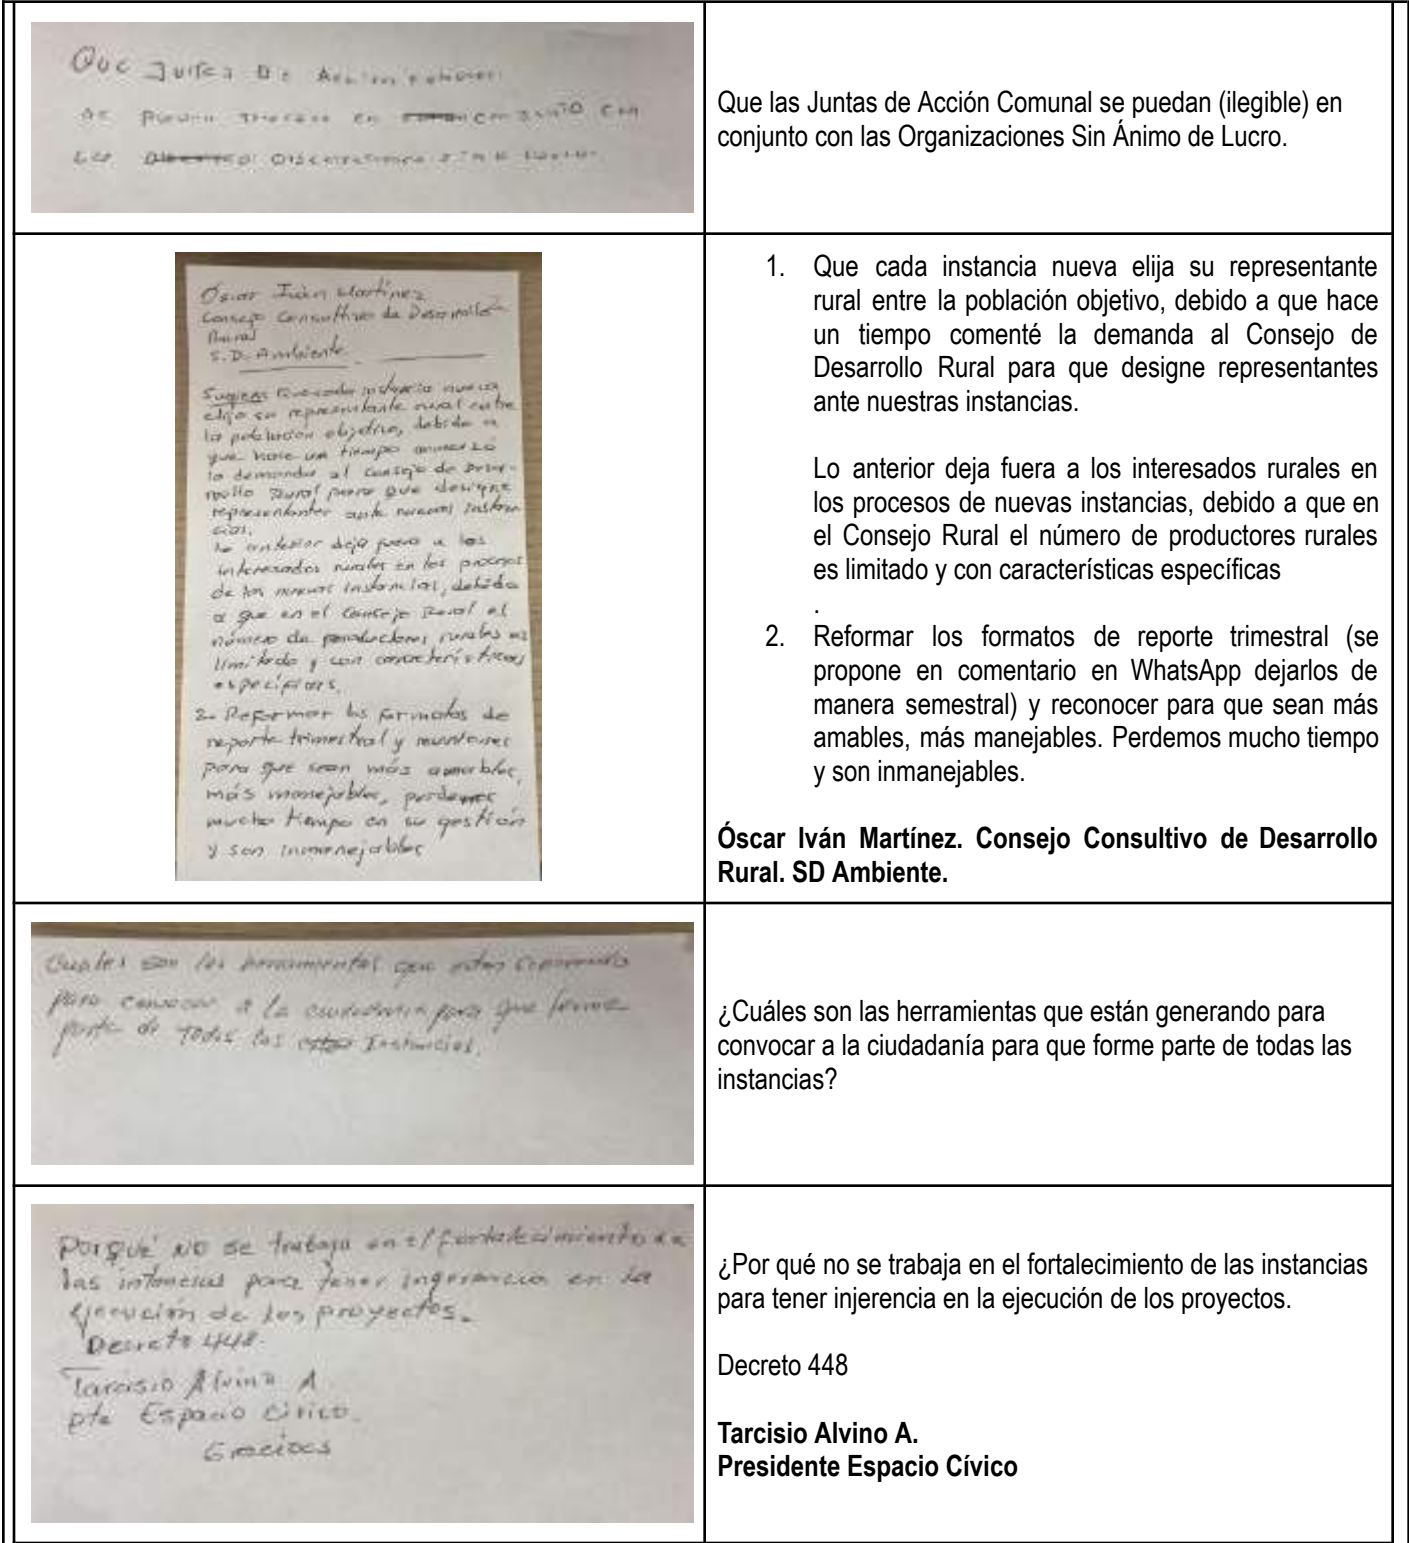 Que Juntas De Acción Comunal
se puedan en conjunto con
Las Organizaciones sin a Lucro.
Que las Juntas de Acción Comunal se puedan (ilegible) en
conjunto con las Organizaciones Sin Ánimo de Lucro.
Óscar Iván Martínez
Consejo Consultivo de Desarrollo
Rural
S.D. Ambiente
Sugiero Que cada instancia nueva
elija su representante rural entre
la población objetivo, debido a
que hace un tiempo
la demanda al Consejo de Desa-
rrollo Rural para que designe
representantes ante nuevas instan
cias.
Lo anterior deja fuera a los
interesados rurales en los procesos
de las nuevas instancias, debido
a que en el Consejo Rural el
número de productores rurales es
limitado y con características
específicas.
2. Reformar los formatos de
reporte trimestral y
para que sean más amables,
más manejables, perdemos
mucho tiempo en su gestión
y son inmanejables
1. Que cada instancia nueva elija su representante
rural entre la población objetivo, debido a que hace
un tiempo comenté la demanda al Consejo de
Desarrollo Rural para que designe representantes
ante nuestras instancias.
Lo anterior deja fuera a los interesados rurales en
los procesos de nuevas instancias, debido a que en
el Consejo Rural el número de productores rurales
es limitado y con características específicas
.
2. Reformar los formatos de reporte trimestral (se
propone en comentario en WhatsApp dejarlos de
manera semestral) y reconocer para que sean más
amables, más manejables. Perdemos mucho tiempo
y son inmanejables.
Óscar Iván Martínez. Consejo Consultivo de Desarrollo
Rural. SD Ambiente.
Cuales son las herramientas que estan
para convocar a la ciudadania para que forme
parte de Todas las Instancias.
¿Cuáles son las herramientas que están generando para
convocar a la ciudadanía para que forme parte de todas las
instancias?
Porqué NO se trabaja en el fortalecimiento de
las instancias para tener ingerencia en la
ejecución de los proyectos.
Decreto 448.
Tarcisio Alvino A
pte Espacio Cívico.
Gracias
¿Por qué no se trabaja en el fortalecimiento de las instancias
para tener injerencia en la ejecución de los proyectos.
Decreto 448
Tarcisio Alvino A.
Presidente Espacio Cívico